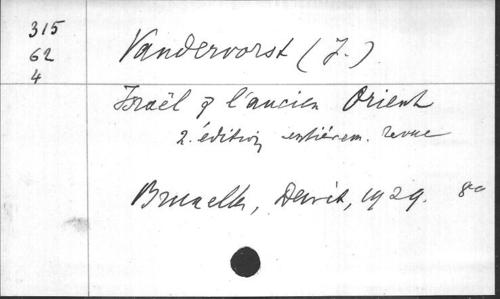 315
62
4
Vandervorst (J.)
Israël & l'ancien Orient
2. édition entièrem. revue
Bruxelles, Dewit, 1929. 8°